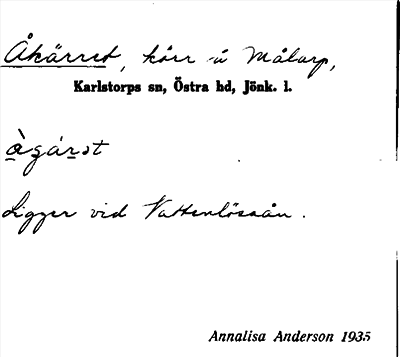 Åkärret, kärr å Målarp,
Karlstorps sn, Östra hd, Jönk. l.
Ligger vid Vattenlössån.
Annalisa Anderson 1935